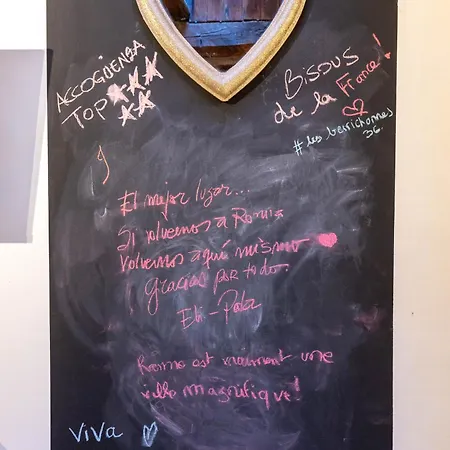 ACCOGLIENZA
TOP
Bisous
de la France!
#les berrichonnes
36
El mejor lugar...
Si volvemos a Roma
Volvemos aquí mismo
Gracias por todo.
Eli - Patr
Rome est vraiment une
ville magnifique!
ViVa